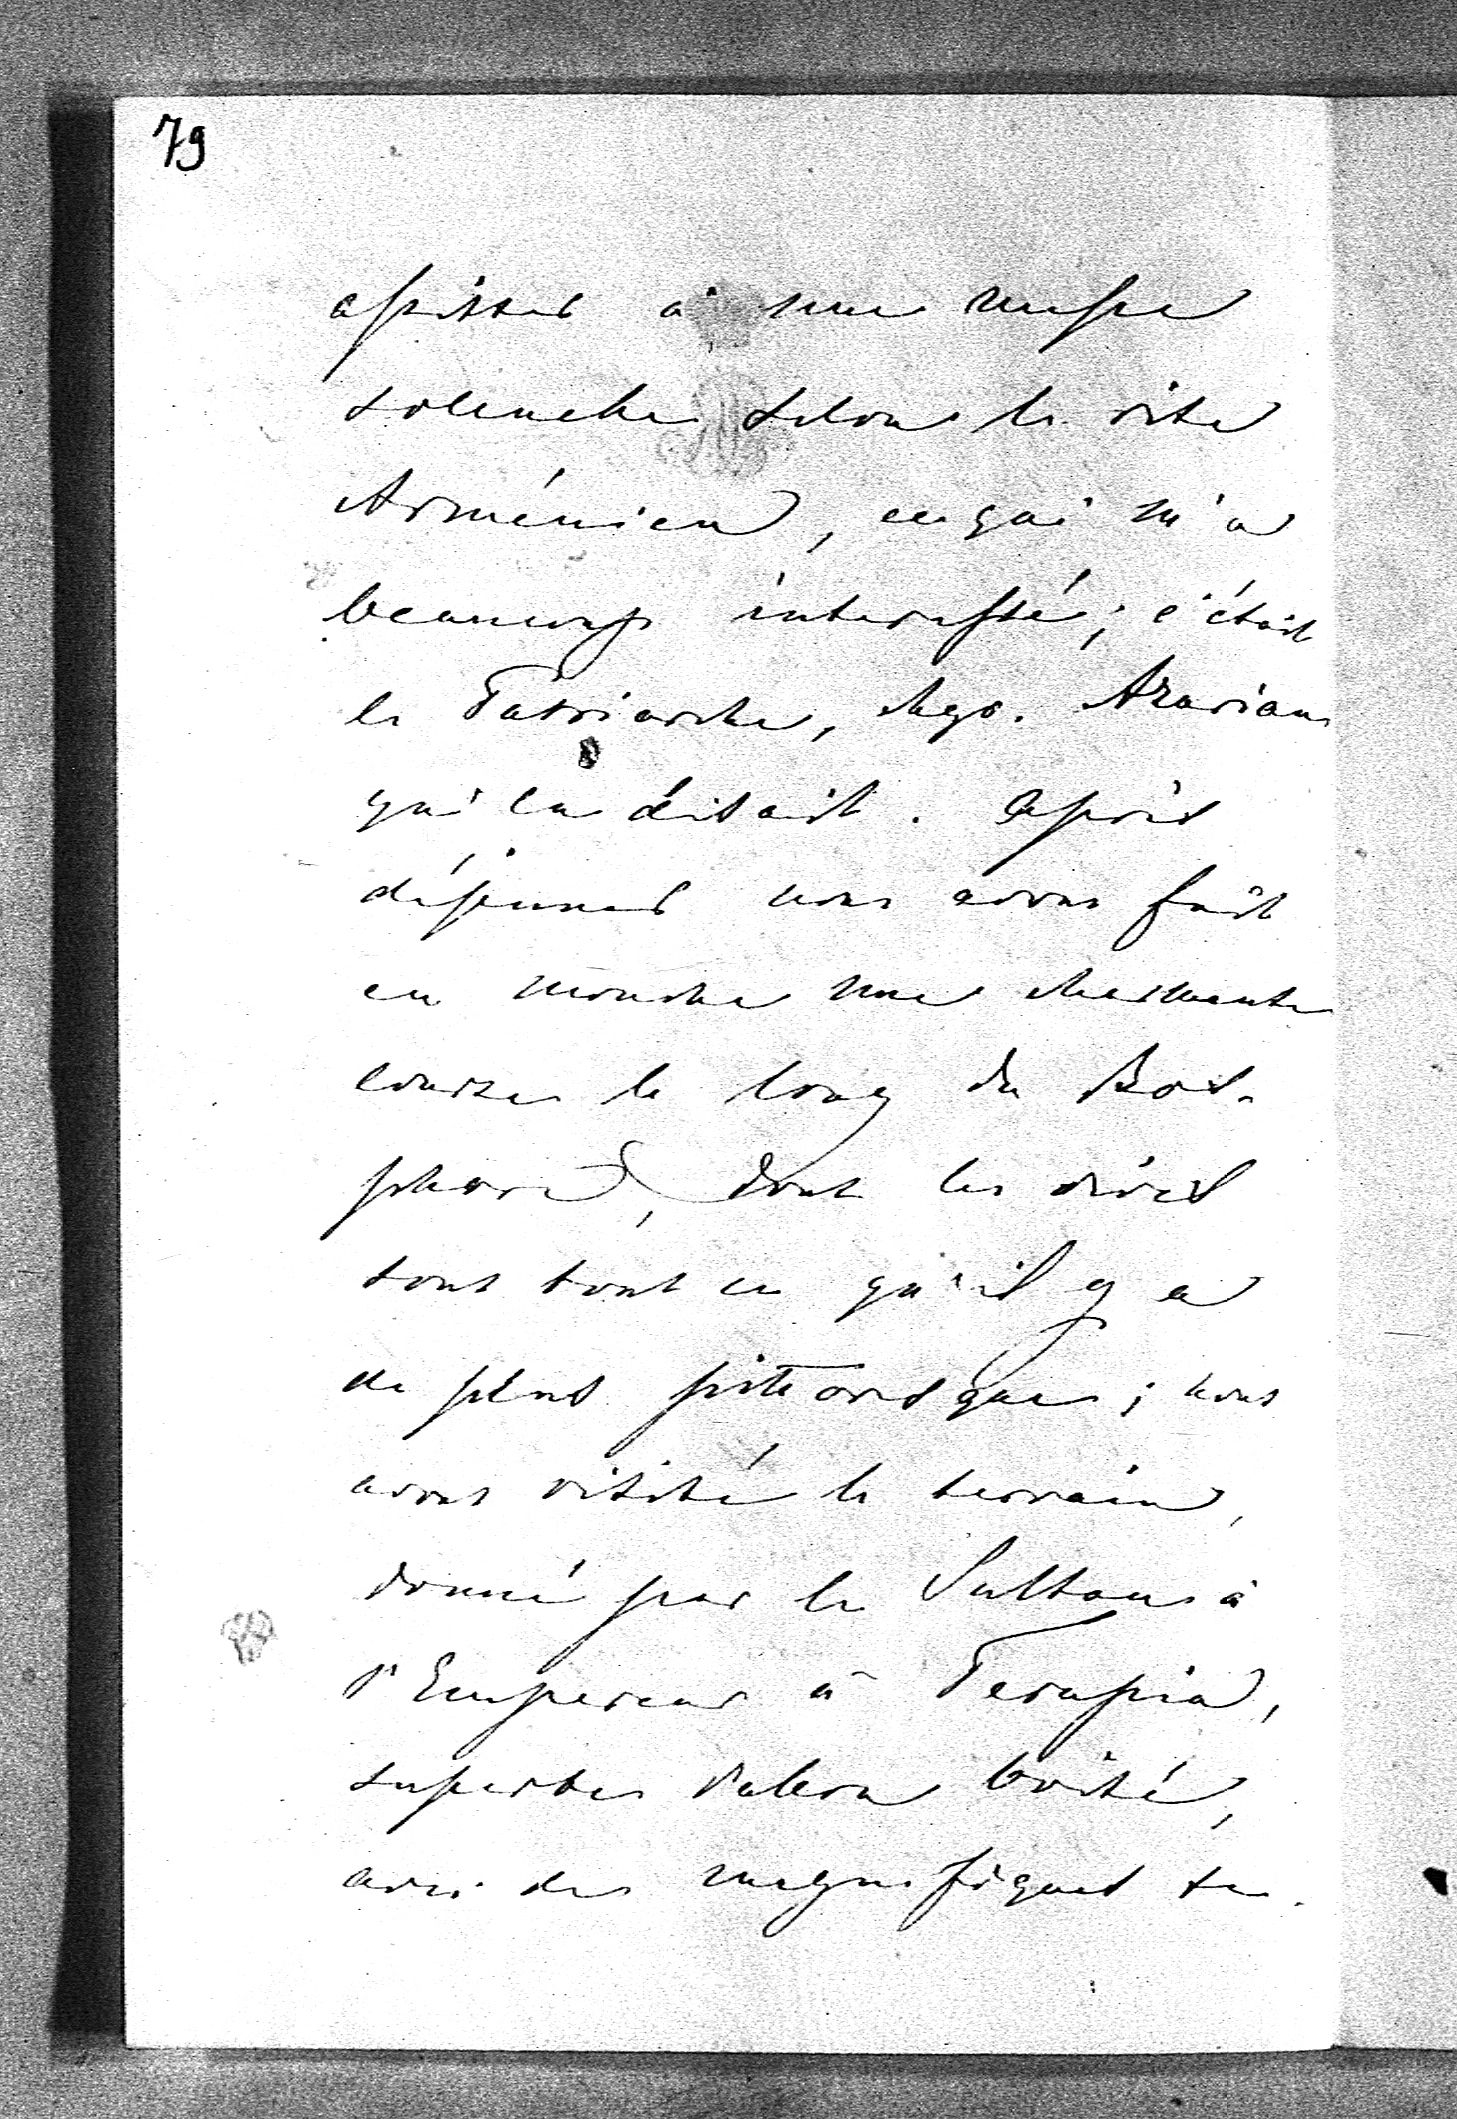 79
assister à une messe
solennelle selon le rite
Arménien, ce qui m'a
beaucoup interessé; c'était
le Patriarche, Mgr. Azarian
qui la disait. Après
déjeuner nous avons fait
en mouche une charmante
course le long du Bos-
phore, dont les rives
sont tout ce qu'il y a
de plus pittoresque; nous
avons visité le terrain,
donné par le Sultan à
l'Empereur à Terapia,
superbe vallon boisé,
avec des magnifiques ter-